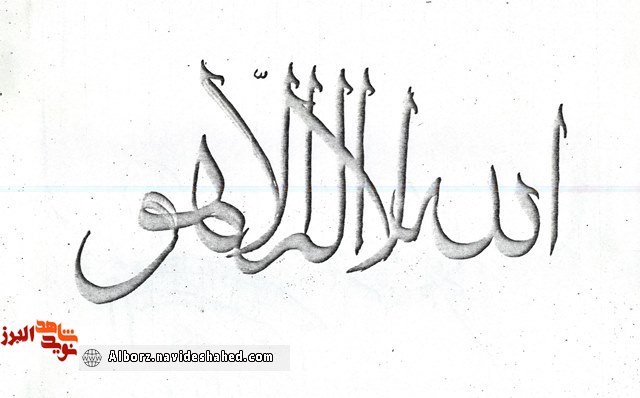 الله لا اله الّا هو
نوید شاهد البرز
Alborz.navideshahed.com